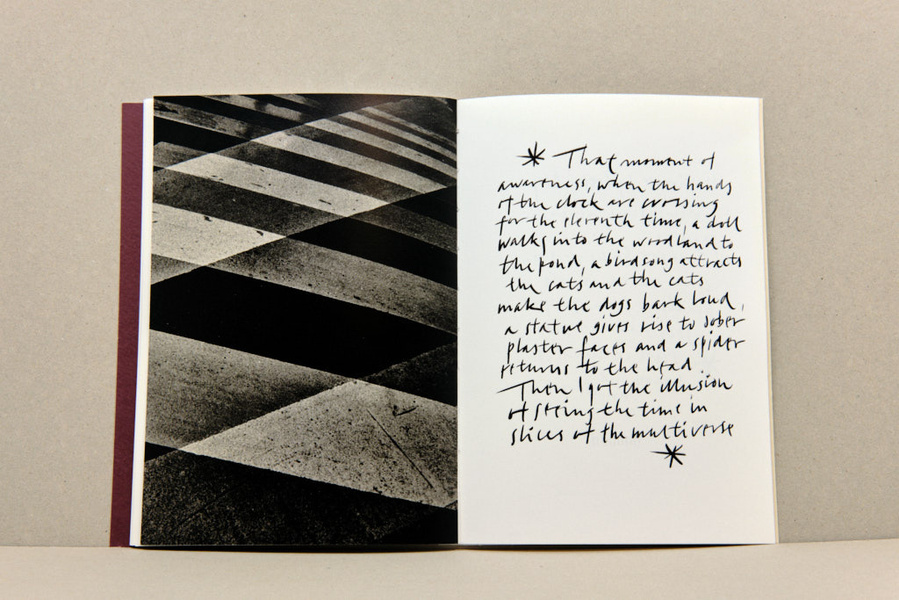 * That moment of
awareness, when the hands
of the clock are crossing
for the eleventh time, a doll
walks into the woodland to
the pond, a birdsong attracts
the cats and the cats
make the dogs bark loud,
a statue gives rise to sober
plaster faces and a spider
returns to the head.
Then I got the illusion
of seeing the time in
slices of the multiverse
*